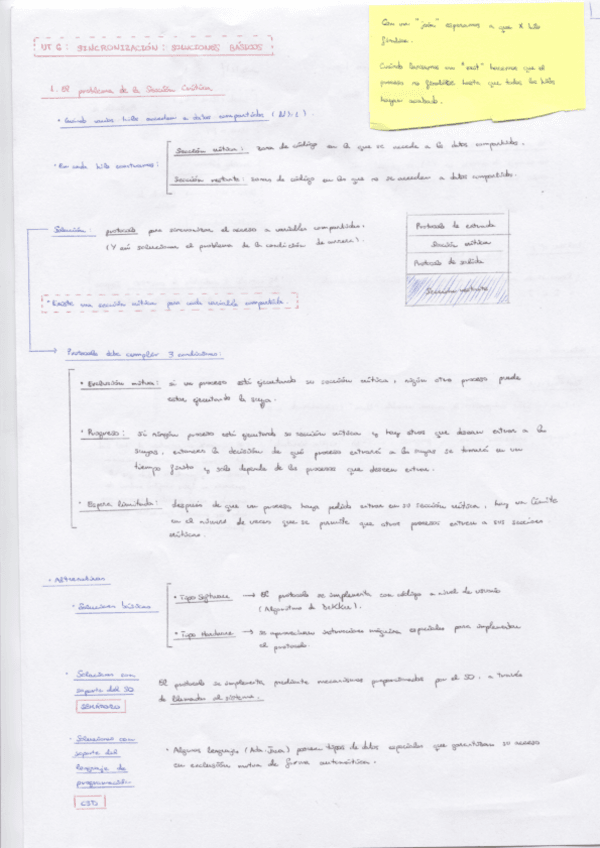 Con un "join" esperamos a que X hilo
finalice.
Cuando lanzamos un "exit" hacemos que el
proceso no finalice hasta que todos los hilos
hayan acabado.
UT 6: SINCRONIZACIÓN: SOLUCIONES BÁSICAS
1. El problema de la Sección Crítica
• Cuando varios hilos acceden a datos compartidos
• En cada hilo
Sección crítica: zona de código en la que se accede a los datos compartidos.
Sección restante: zonas de código en las que no se acceden a datos compartidos.
Solución: protocolo para sincronizar el acceso a variables compartidas.
(Y así solucionar el problema de la condición de carrera).
Protocolo de entrada
Sección crítica
Protocolo de salida
Sección restante
• Existe una sección crítica para cada variable compartida.
Protocolo debe cumplir 3 condiciones:
• Exclusión mutua: si un proceso está ejecutando su sección crítica, ningún otro proceso puede
estar ejecutando la suya.
• Progreso: Si ningún proceso está ejecutando su sección crítica y hay otros que desean entrar a las
suyas, entonces la decisión de qué proceso entrará a la suya se tomará en un
tiempo finito y solo depende de los procesos que desean entrar.
• Espera limitada: después de que un proceso haya pedido entrar en su sección crítica, hay un límite
en el número de veces que se permite que otros procesos entren a sus secciones
críticas.
• Alternativas
• Soluciones básicas
• Tipo Software → El protocolo se implementa con código a nivel de usuario
(Algoritmo de Dekker).
• Tipo Hardware → Se aprovechan instrucciones máquina especiales para implementar
el protocolo.
• Soluciones con
soporte del SO
SEMÁFORO
El protocolo se implementa mediante mecanismos proporcionados por el SO, a través
de llamadas al sistema.
• Soluciones con
soporte del
lenguaje de
programación
• Algunos lenguajes (Ada-Java) poseen tipos de datos especiales que garantizan su acceso
en exclusión mutua de forma automática.